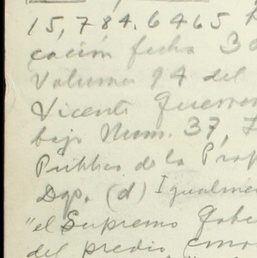 15,784.6465
cación fecha 30
Volumen 94 del
Vicente Guerrer
bajo Num. 37, 7
Público de la Prop
Dgo. (d) Igualmen
"el Supremo Gobe
del predio